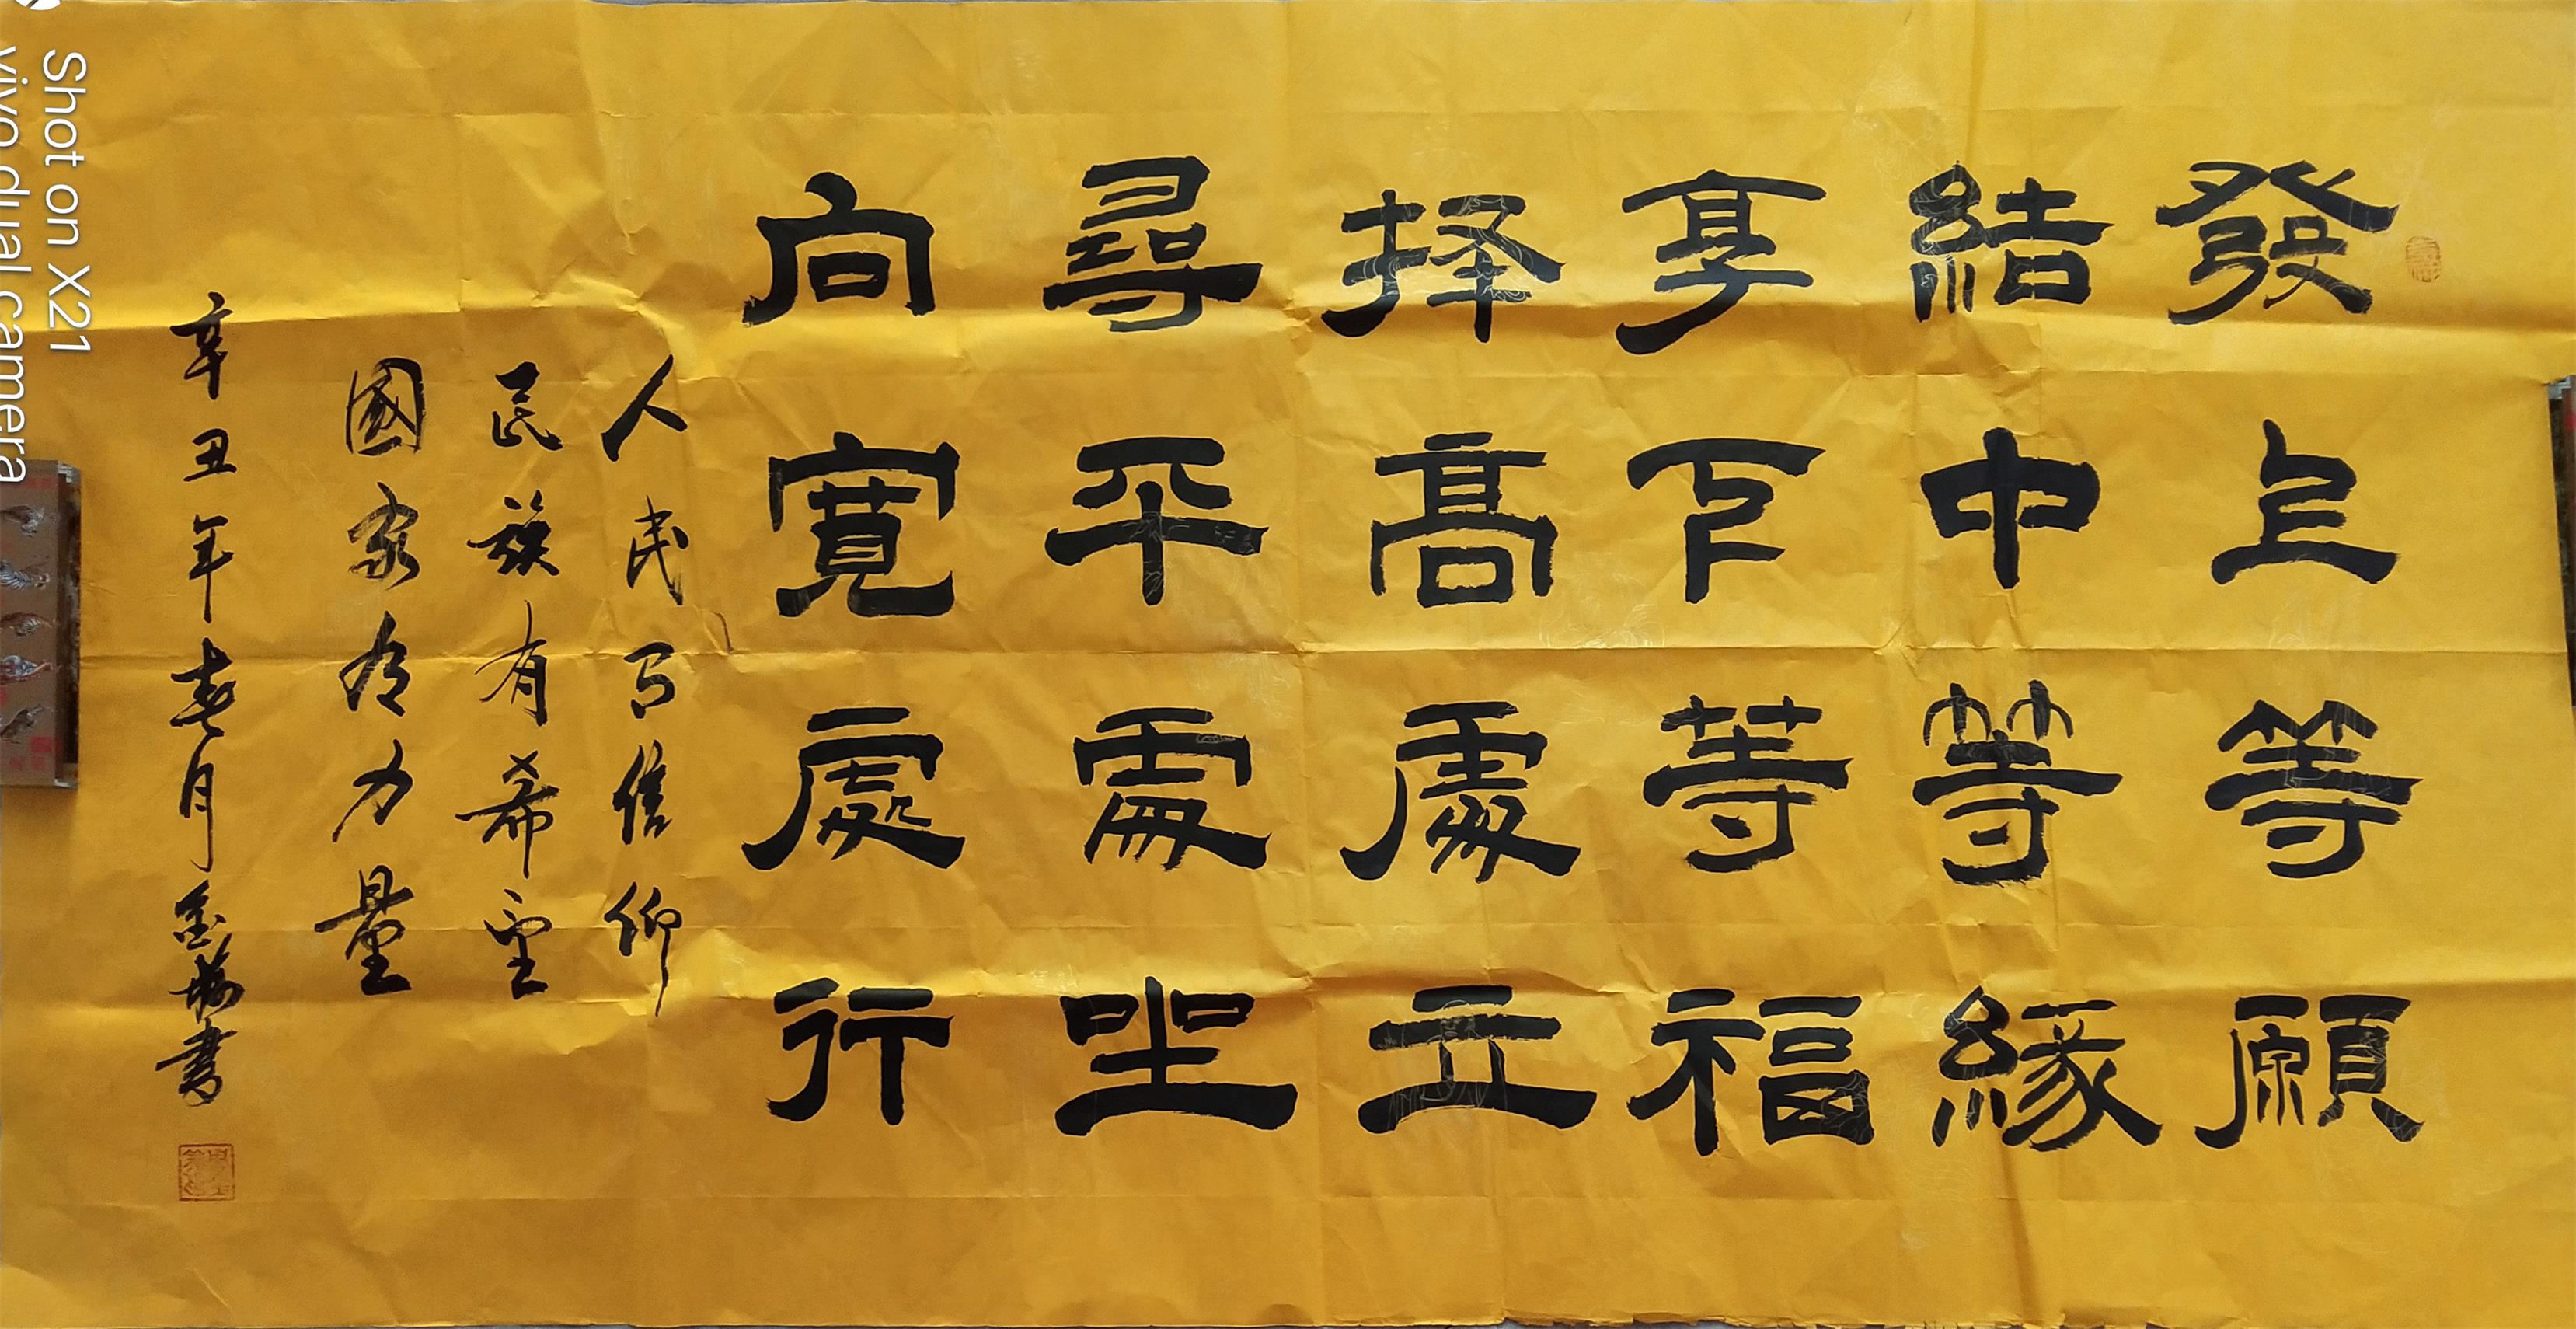 發上等願
結中等緣
享下等福
择高處立
尋平處坐
向寬處行
人民有信仰
民族有希望
國家有力量
辛丑年春月
書
Shot on X21
vivo dual camera